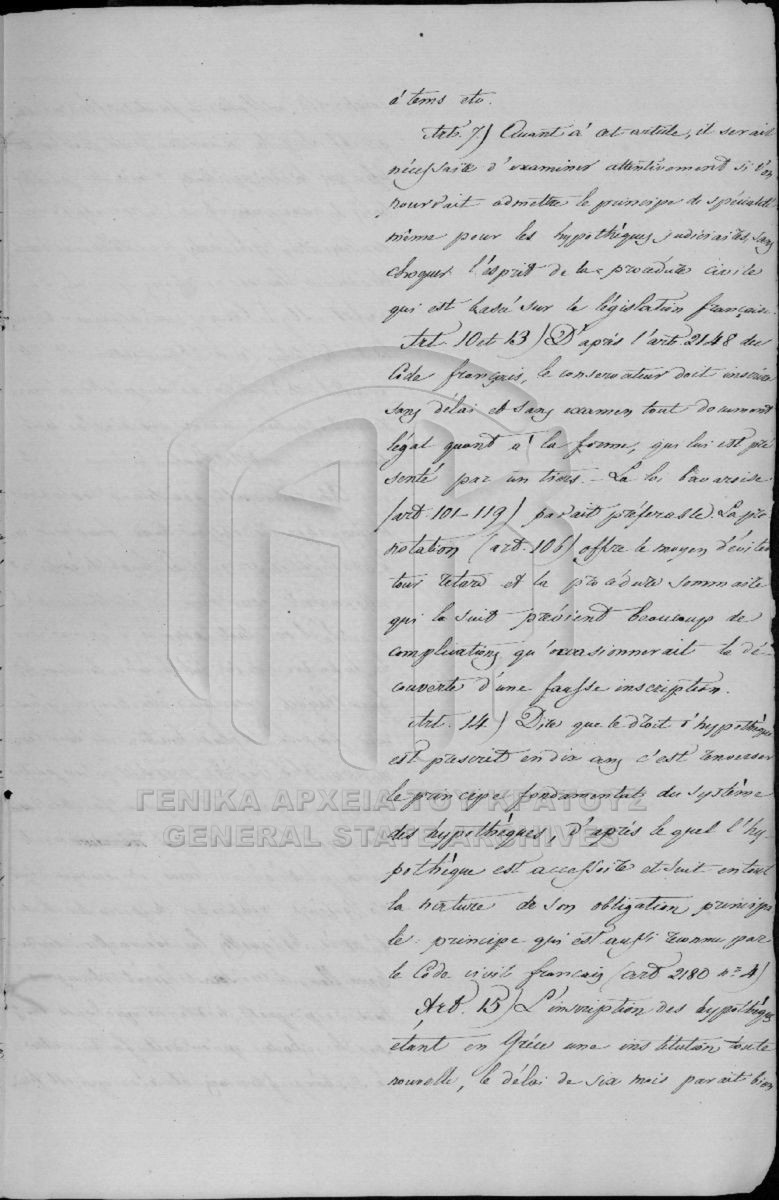 á tems etc.
Art. 7) Quant à cet article, il serait
nécessaire d'examiner attentivement si l'on
pourrait admettre le principe de spécialité
même pour les hypothèques judiciaires, sans
choquer l'esprit de la procédure civile
qui est basé sur la législation française.
Art. 10 et 13) D'après l'art. 2148 du
Code français, le conservateur doit inscrire
sans délai et sans examen tout document
légal quant à la forme, qui lui est pré
senté par un tiers. – La loi bavaroise
(art. 101–119) parait préferable. La pré
notation (art. 106) offre le moyen d'éviter
tout retard et la procédure sommaire
qui la suit prévient beaucoup de
complications qu'occasionnerait la dé-
couverte d'une fausse inscription.
Art. 14) Dire que le droit d'hypothèque
est prescrit en dix ans c'est renverser
le principe fondamentale du système
des hypothèques, d'après le quel l'hy-
pothèque est accessoire et suit en tout
la nature de son obligation principa
le: principe qui est aussi reconnu par
le Code civil français (art 2180 nº 4)
Art. 15) L'inscription des hypothèques
étant en Grèce une institution toute
nouvelle, le délai de six mois parait bien
ΓΕΝΙΚΑ ΑΡΧΕΙΑ ΤΟΥ ΚΡΑΤΟΥΣ
GENERAL STATE ARCHIVES